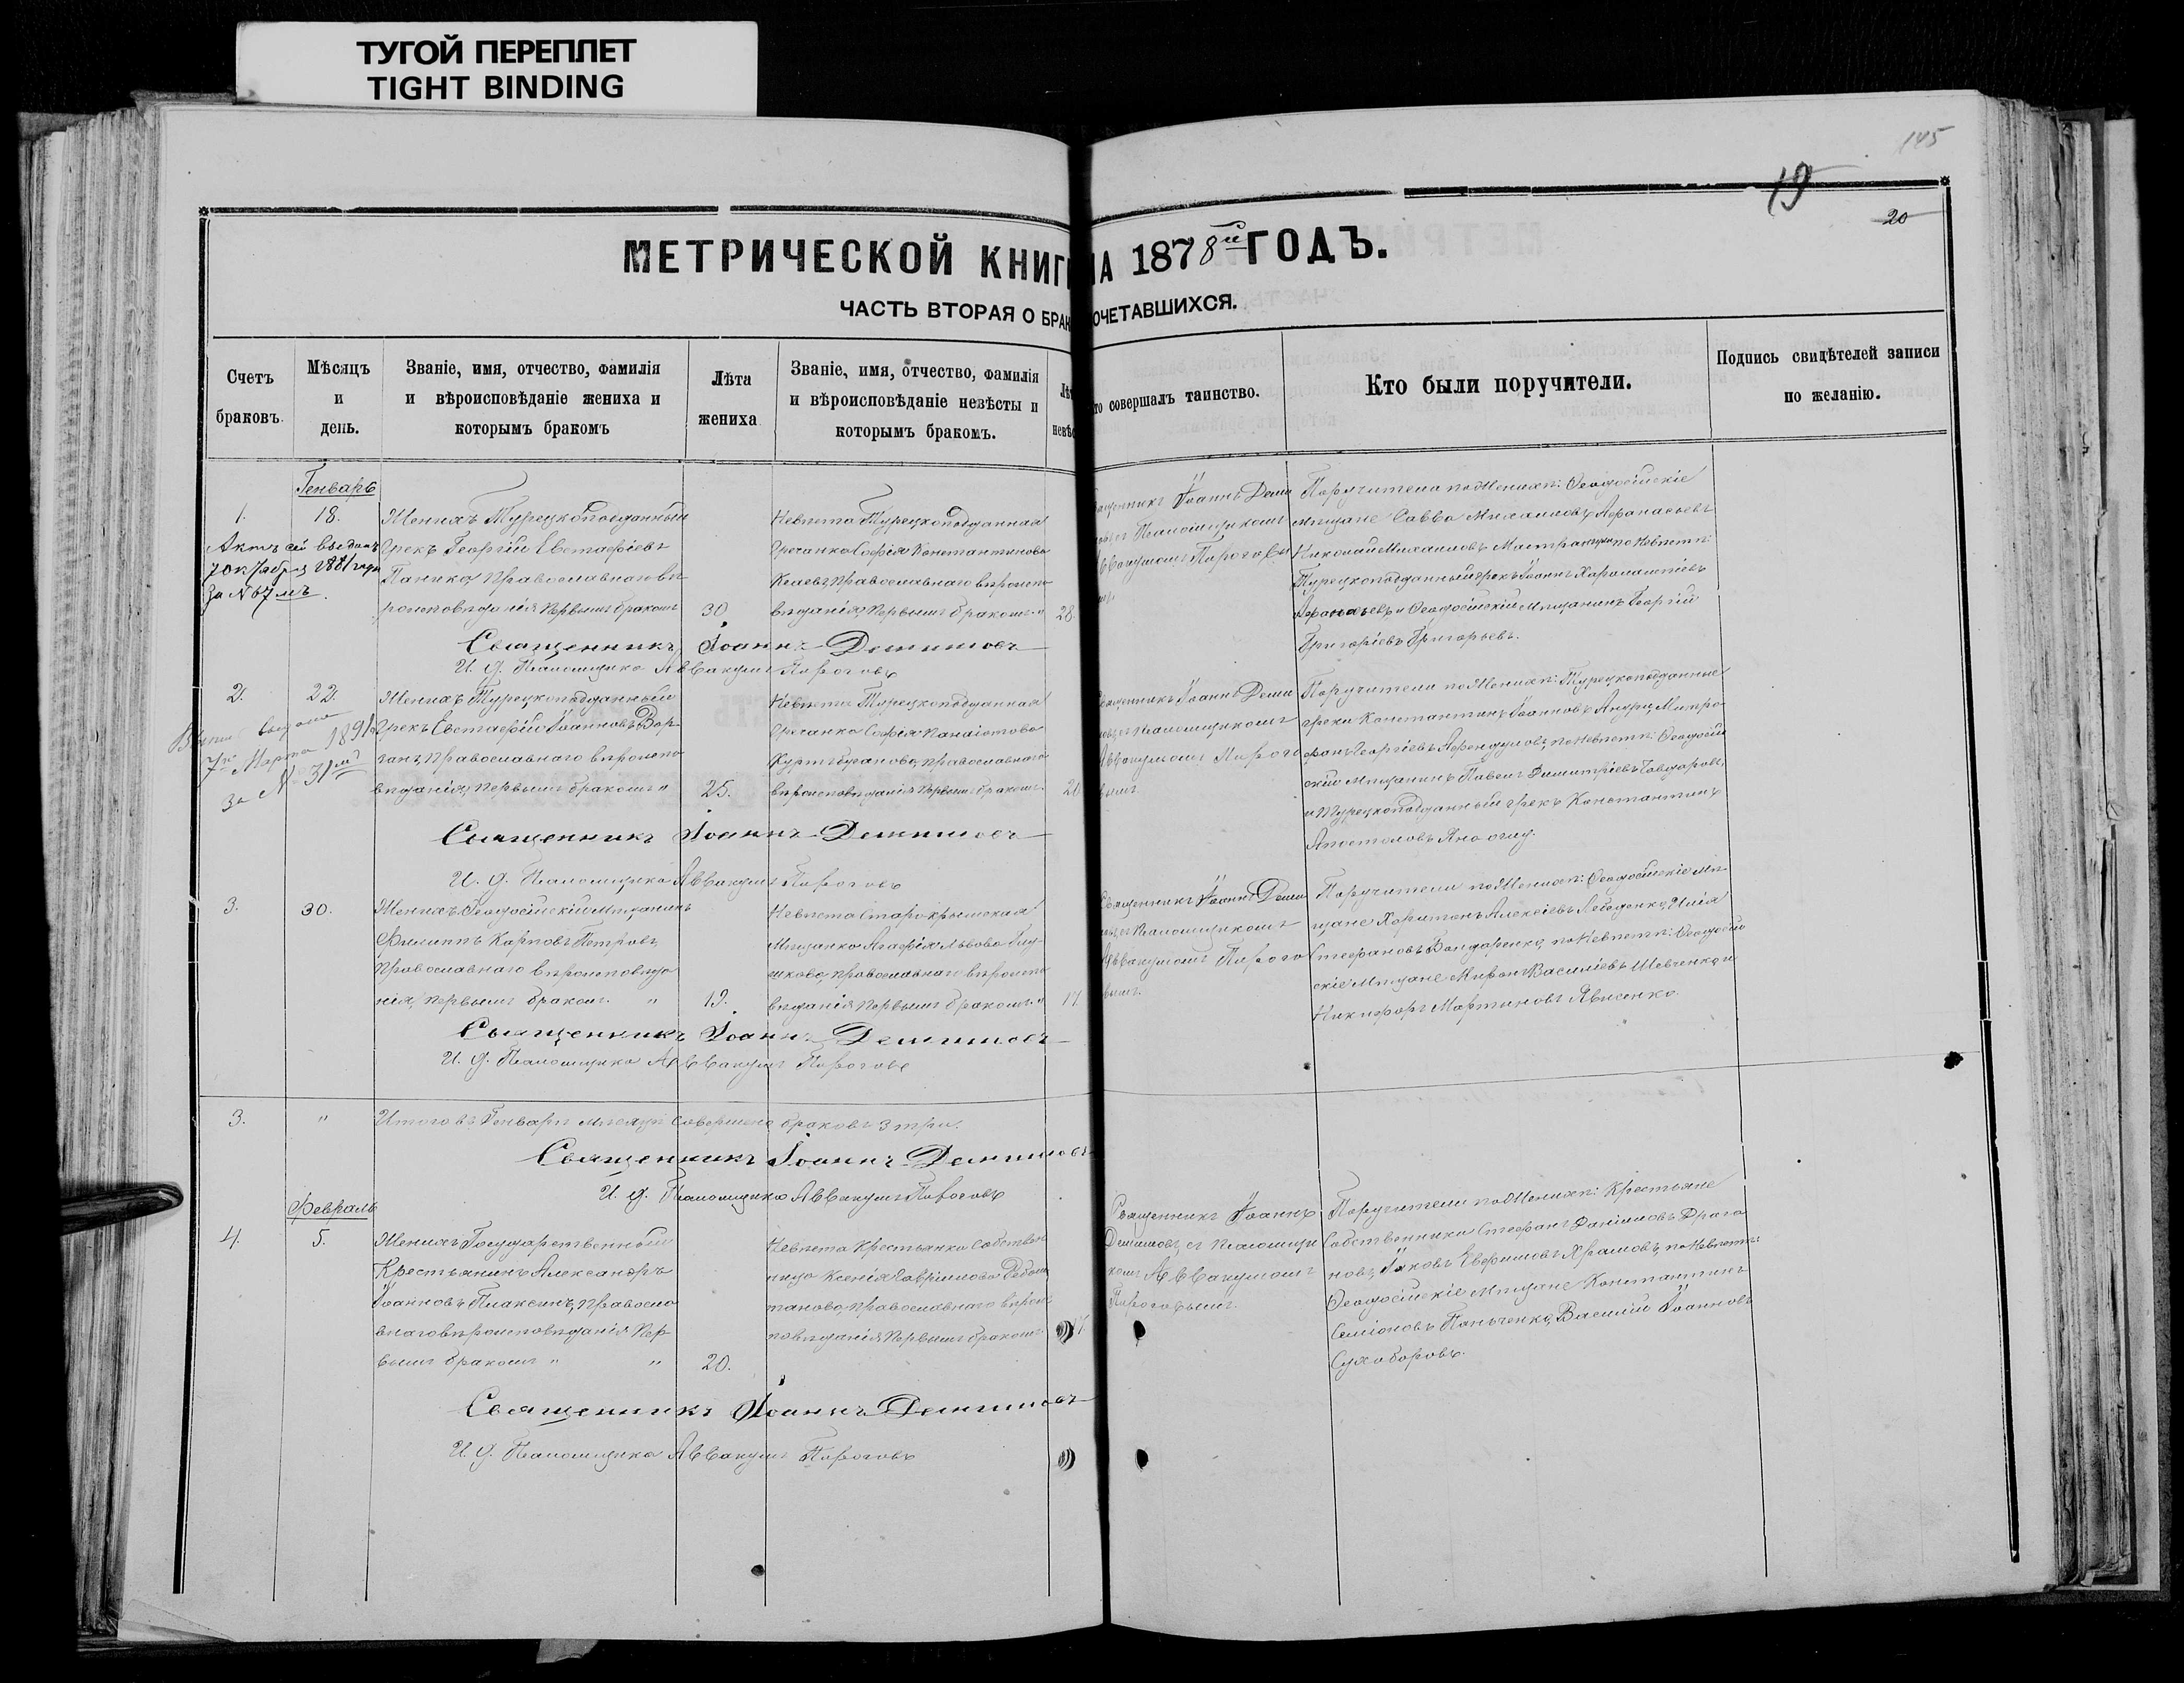 ТУГОЙ ПЕРЕПЛЕТ
TIGHT BINDING
145
19
20
МЕТРИЧЕСКОЙ КНИГ НА 1878й ГОДЪ.
ЧАСТЬ ВТОРАЯ О БРАКОСОЧЕТАВШИХСЯ.
Счетъ браковъ.
Мѣсяцъ и день.
Званіе, имя, отчество, фамилія и вѣроисповѣданіе жениха и которымъ бракомъ
Лѣта жениха
Званіе, имя, отчество, фамилія и вѣроисповѣданіе невѣсты и которымъ бракомъ.
Лѣ невѣс
то совершалъ таинство.
Кто были поручители.
Подпись свидѣтелей записи по желанію.
Генварь
1.
18.
Актъ сей выданъ
7 Октября 1881 года
За № 67мъ.
Женихъ Турецкоподданный
Грекъ Георгій Евстафіевъ
Православнаго вѣ
роисповѣданія Первымъ бракомъ
30.
Невѣста Турецкоподданная
Гречанка Софія Константинова
Православнаго вѣроиспо
вѣданія, Первымъ бракомъ. "
28.
Священникъ Іоаннъ Деми
Псаломщикомъ
Аввакумомъ Пирого
Поручители по Женихѣ: Ѳеодосійскіе
мѣщане Савва Михаиловъ Афанасьевъ
Николай Михаиловъ по Невѣстѣ:
Турецкоподданный грекъ Іоаннъ Харлампіевъ
Афанасьевъ и Ѳеодосійскій Мѣщанинъ Георгій
Григоріевъ Григорьевъ.
Священникъ Іоаннъ Демишовъ
И. Д. Псаломщика Аввакумъ Пироговъ
2.
22.
выдана
7го Марта 1891
За № 31мъ
Женихъ Турецкоподданный
Грекъ Евстафій Іоанновъ Вар-
Православнаго вѣроиспо
вѣданія, Первымъ бракомъ "
25.
Невѣста Турецкоподданная
Гречанка Софія Панаіотова
Православнаго
вѣроисповѣданія Первымъ бракомъ.
20
Священникъ Іоаннъ Деми
съ Псаломщикомъ
Аввакумомъ Пирого
вымъ
Поручители по Женихѣ: Турецкоподданные
греки Константинъ Іоанновъ Митро
фанъ Георгіевъ по Невѣстѣ: Ѳеодосій
скій Мѣщанинъ Павелъ Димитріевъ
и Турецкоподданный грекъ Константинъ
Апостоловъ
Священникъ Іоаннъ Демишовъ
И. Д. Псаломщика Аввакумъ Пироговъ
3.
30.
Женихъ Ѳеодосійскій Мѣщанинъ
Филиппъ Карповъ Петровъ,
Православнаго вѣроисповѣда
нія, Первымъ бракомъ. "
19.
Невѣста Старокрымская
Мѣщанка Агафія Львова
православнаго вѣроиспо
вѣданія Первымъ бракомъ. "
17
Священникъ Іоаннъ Деми
съ Псаломщикомъ
Аввакумомъ Пирого
вымъ.
Поручители по Женихѣ: Ѳеодосійскіе мѣ
щане Харитонъ Алексіевъ Лебеденко, Илія
Стефановъ Бондаренко, по Невѣстѣ: Ѳеодосій
скіе Мѣщане Миронъ Василіевъ Шевченко, и
Никифоръ Мартиновъ
Священникъ Іоаннъ Демишовъ
И. Д. Псаломщика Аввакумъ Пироговъ
3.
"
Итого въ Генварѣ мѣсяцѣ совершено браковъ 3 три.
Священникъ Іоаннъ Демишовъ
И. Д. Псаломщика Аввакумъ Пироговъ
Февраль
4.
5.
Женихъ Государственный
Крестьянинъ Александръ
Іоанновъ Плаксинъ, Правосла
внаго вѣроисповѣданія Пер
вымъ бракомъ " "
20.
Невѣста Крестьянка Собствен
ница Ксенія Гавріилова
православнаго вѣроис
повѣданія Первымъ бракомъ.
17.
Священникъ Іоаннъ
Демишовъ, съ Псаломщи
комъ Аввакумомъ
Пироговымъ.
Поручители по Женихѣ: Крестьяне
Собственники Стефанъ Даніиловъ Драга
новъ, Іаковъ Ефимовъ Храмовъ, по Невѣстѣ:
Ѳеодосійскіе Мѣщане Константинъ
Симіоновъ Панченко, Василій Іоанновъ
Сухоборовъ.
Священникъ Іоаннъ Демишовъ
И. Д. Псаломщика Аввакумъ Пироговъ